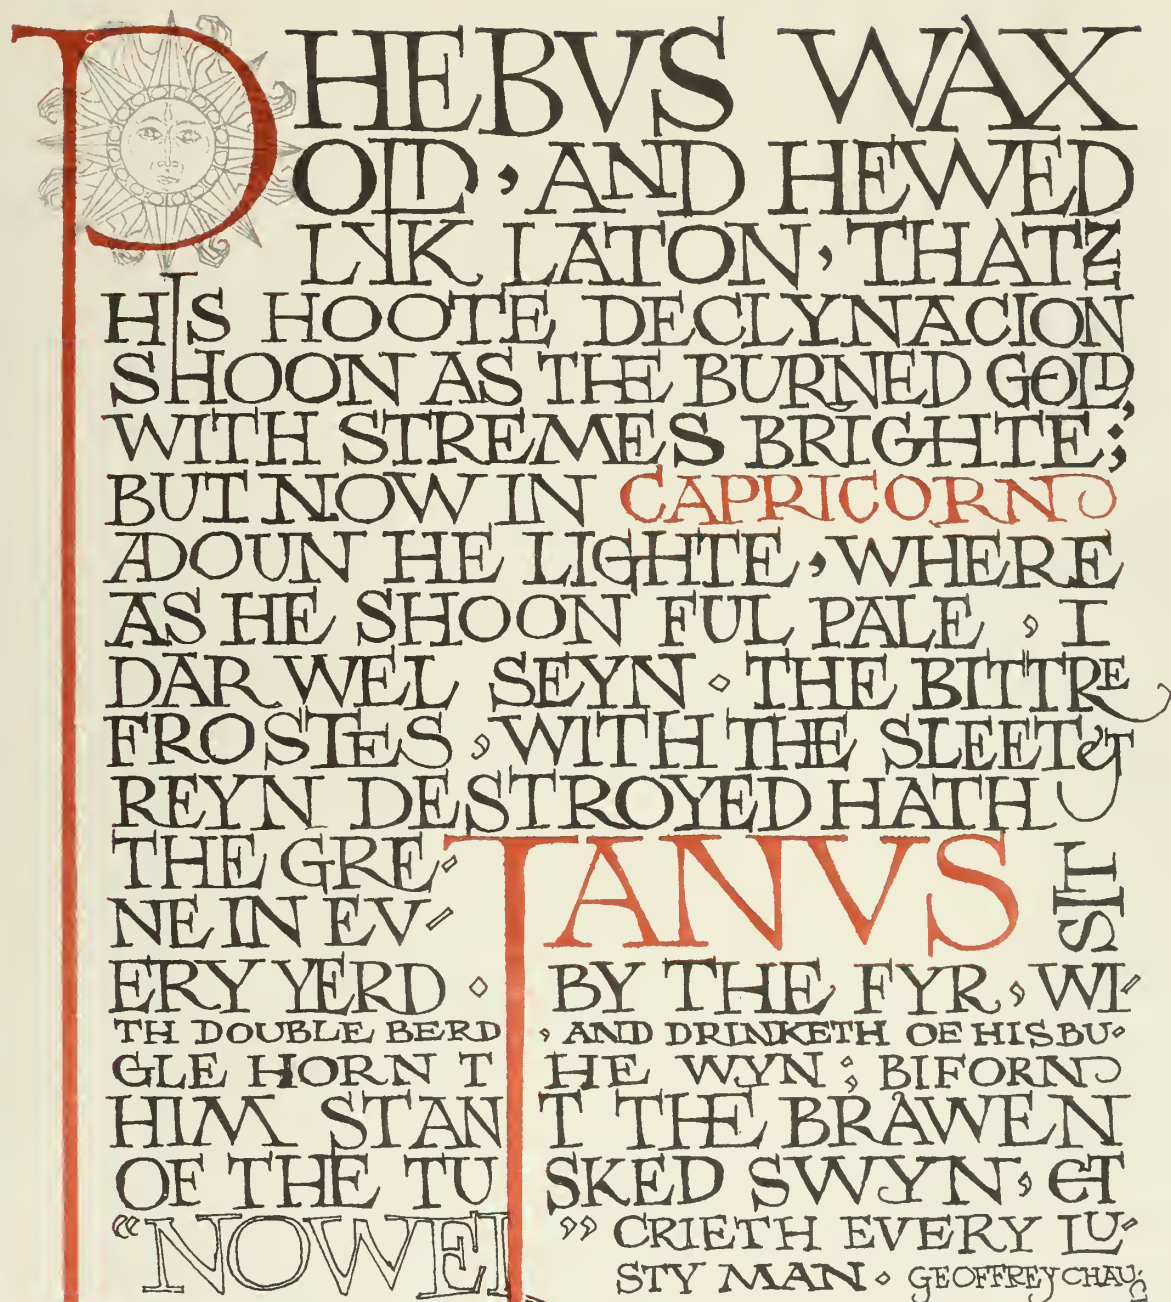 PHEBVS WAX
OLD, AND HEWED
LYK LATON, THAT
HIS HOOTE DECLYNACION
SHOON AS THE BURNED GOLD,
WITH STREMES BRIGHTE;
BUT NOW IN CAPRICORN
ADOUN HE LIGHTE, WHERE
AS HE SHOON FUL PALE, I
DAR WEL SEYN. THE BITTRE
FROSTES, WITH THE SLEET &
REYN DESTROYED HATH
THE GRE-
NE IN EV-
ERY YERD.
JANVS SIT
BY THE FYR, WI-
TH DOUBLE BERD, AND DRINKETH OF HIS BU-
GLE HORN THE WYN; BIFORN
HIM STANT THE BRAWEN
OF THE TUSKED SWYN, ET
"NOWEL" CRIETH EVERY LU-
STY MAN. GEOFFREY CHAUC